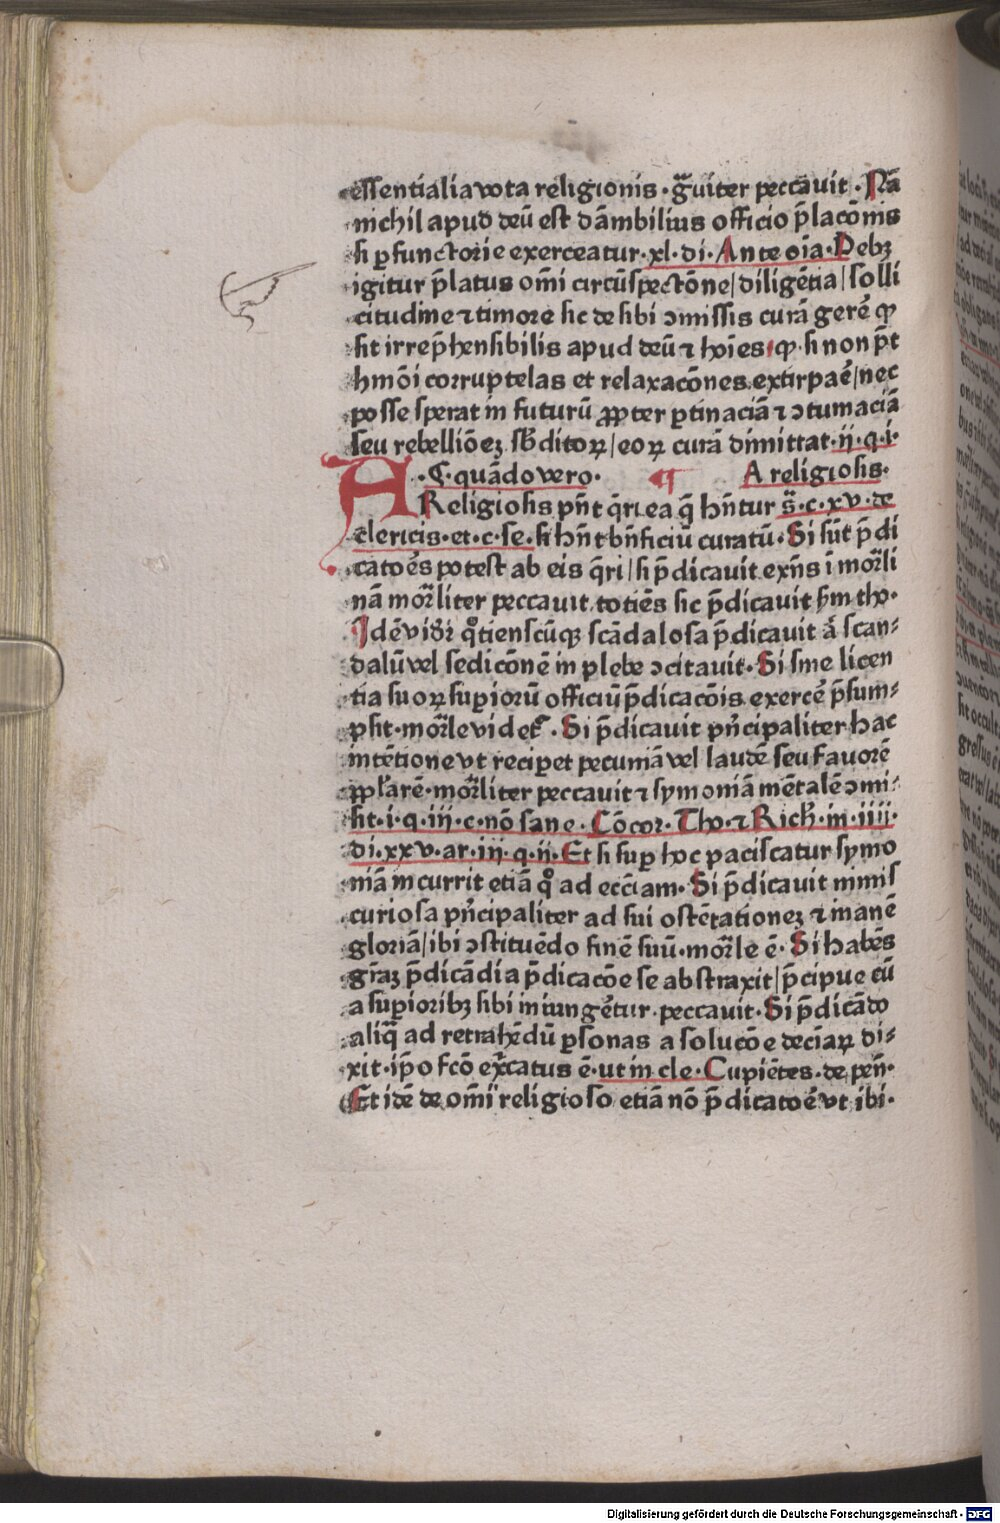 essentialia vota religionis · gͣuiter peccauit · Nā
nichil apud deū est dāmbilius officio p̄lacōnis
si ꝑfunctorie exerceatur · xl · di · Ante oīa · Debꝫ
igitur p̄latus om̄i circūspectōne / diligētia / solli
citudine ⁊ timore sic de sibi ↄmissis curā gerē̄ ꝙ
sit irrep̄hensibilis apud deū ⁊ hoīes · ꝙ · si non p̄t
hmōi corruptelas et relaxacōnes extirpaē̄ / nec
posse sperat in futurū ꝓpter ꝑtinaciā ⁊ ↄtumaciā
seu rebelliōeꝫ sb̄ditoꝝ / eoꝝ curā dimittat · ij · q · i ·
· C · quādo vero · ¶ A religiosis ·
A Religiosis pn̄t q̄ri ea q̄ hn̄tur s̄ · c · xv · de
clericis · et · c · se · si hn̄t bn̄ficiū curatū · Si sūt p̄di
catoēs potest ab eis q̄ri / si p̄dicauit exn̄s ī mor̄li
nā mor̄liter peccauit totiēs sic p̄dicauit sm̄ tho ·
Idē videt̄ qͦtienscūqꝫ scādalosa p̄dicauit ā scan-
dalū vel sedicōnē in plebe ↄcitauit · Si sine licen
tia suoꝝ suꝑiorū officiū p̄dicacōis exercē̄ p̄sum-
psit · mor̄le videt̄ · Si p̄dicauit pn̄cipaliter hac
intētione vt reciꝑet pecuniā vel laudē seu fauorē
ppl̄arē · mor̄liter peccauit ⁊ symoniā mētalē ↄmi-
sit · i · q · iij · c · nō sane · Cōcor · Tho · ⁊ Rich̄ · in · iiij ·
di · xxv · ar · iij · q · ij · Et si suꝑ hoc paciscatur symo
niā incurrit etiā qͦ ad ecc̄iam · Si p̄dicauit nimis
curiosa pn̄cipaliter ad sui ostētationeꝫ ⁊ inanē
gloriā / ibi ↄstituēdo finē suū · mor̄le ē · Si habēs
gr̄aꝫ p̄dicādi a p̄dicacōe se abstraxit / p̄cipue cū
a suꝑioribꝫ sibi iniungēt̄ur · peccauit · Si p̄dicādo
aliq̄ ad retrahēdū ꝑsonas a solucōe decīaꝝ di-
xit · ip̄o fc̄o exc̄catus ē · ut in cle · Cupiētes · de pen̄ ·
Et idē de om̄i religioso etiā nō p̄dicatoē̄ vt ibi ·
Digitalisierung gefördert durch die Deutsche Forschungsgemeinschaft - DFG